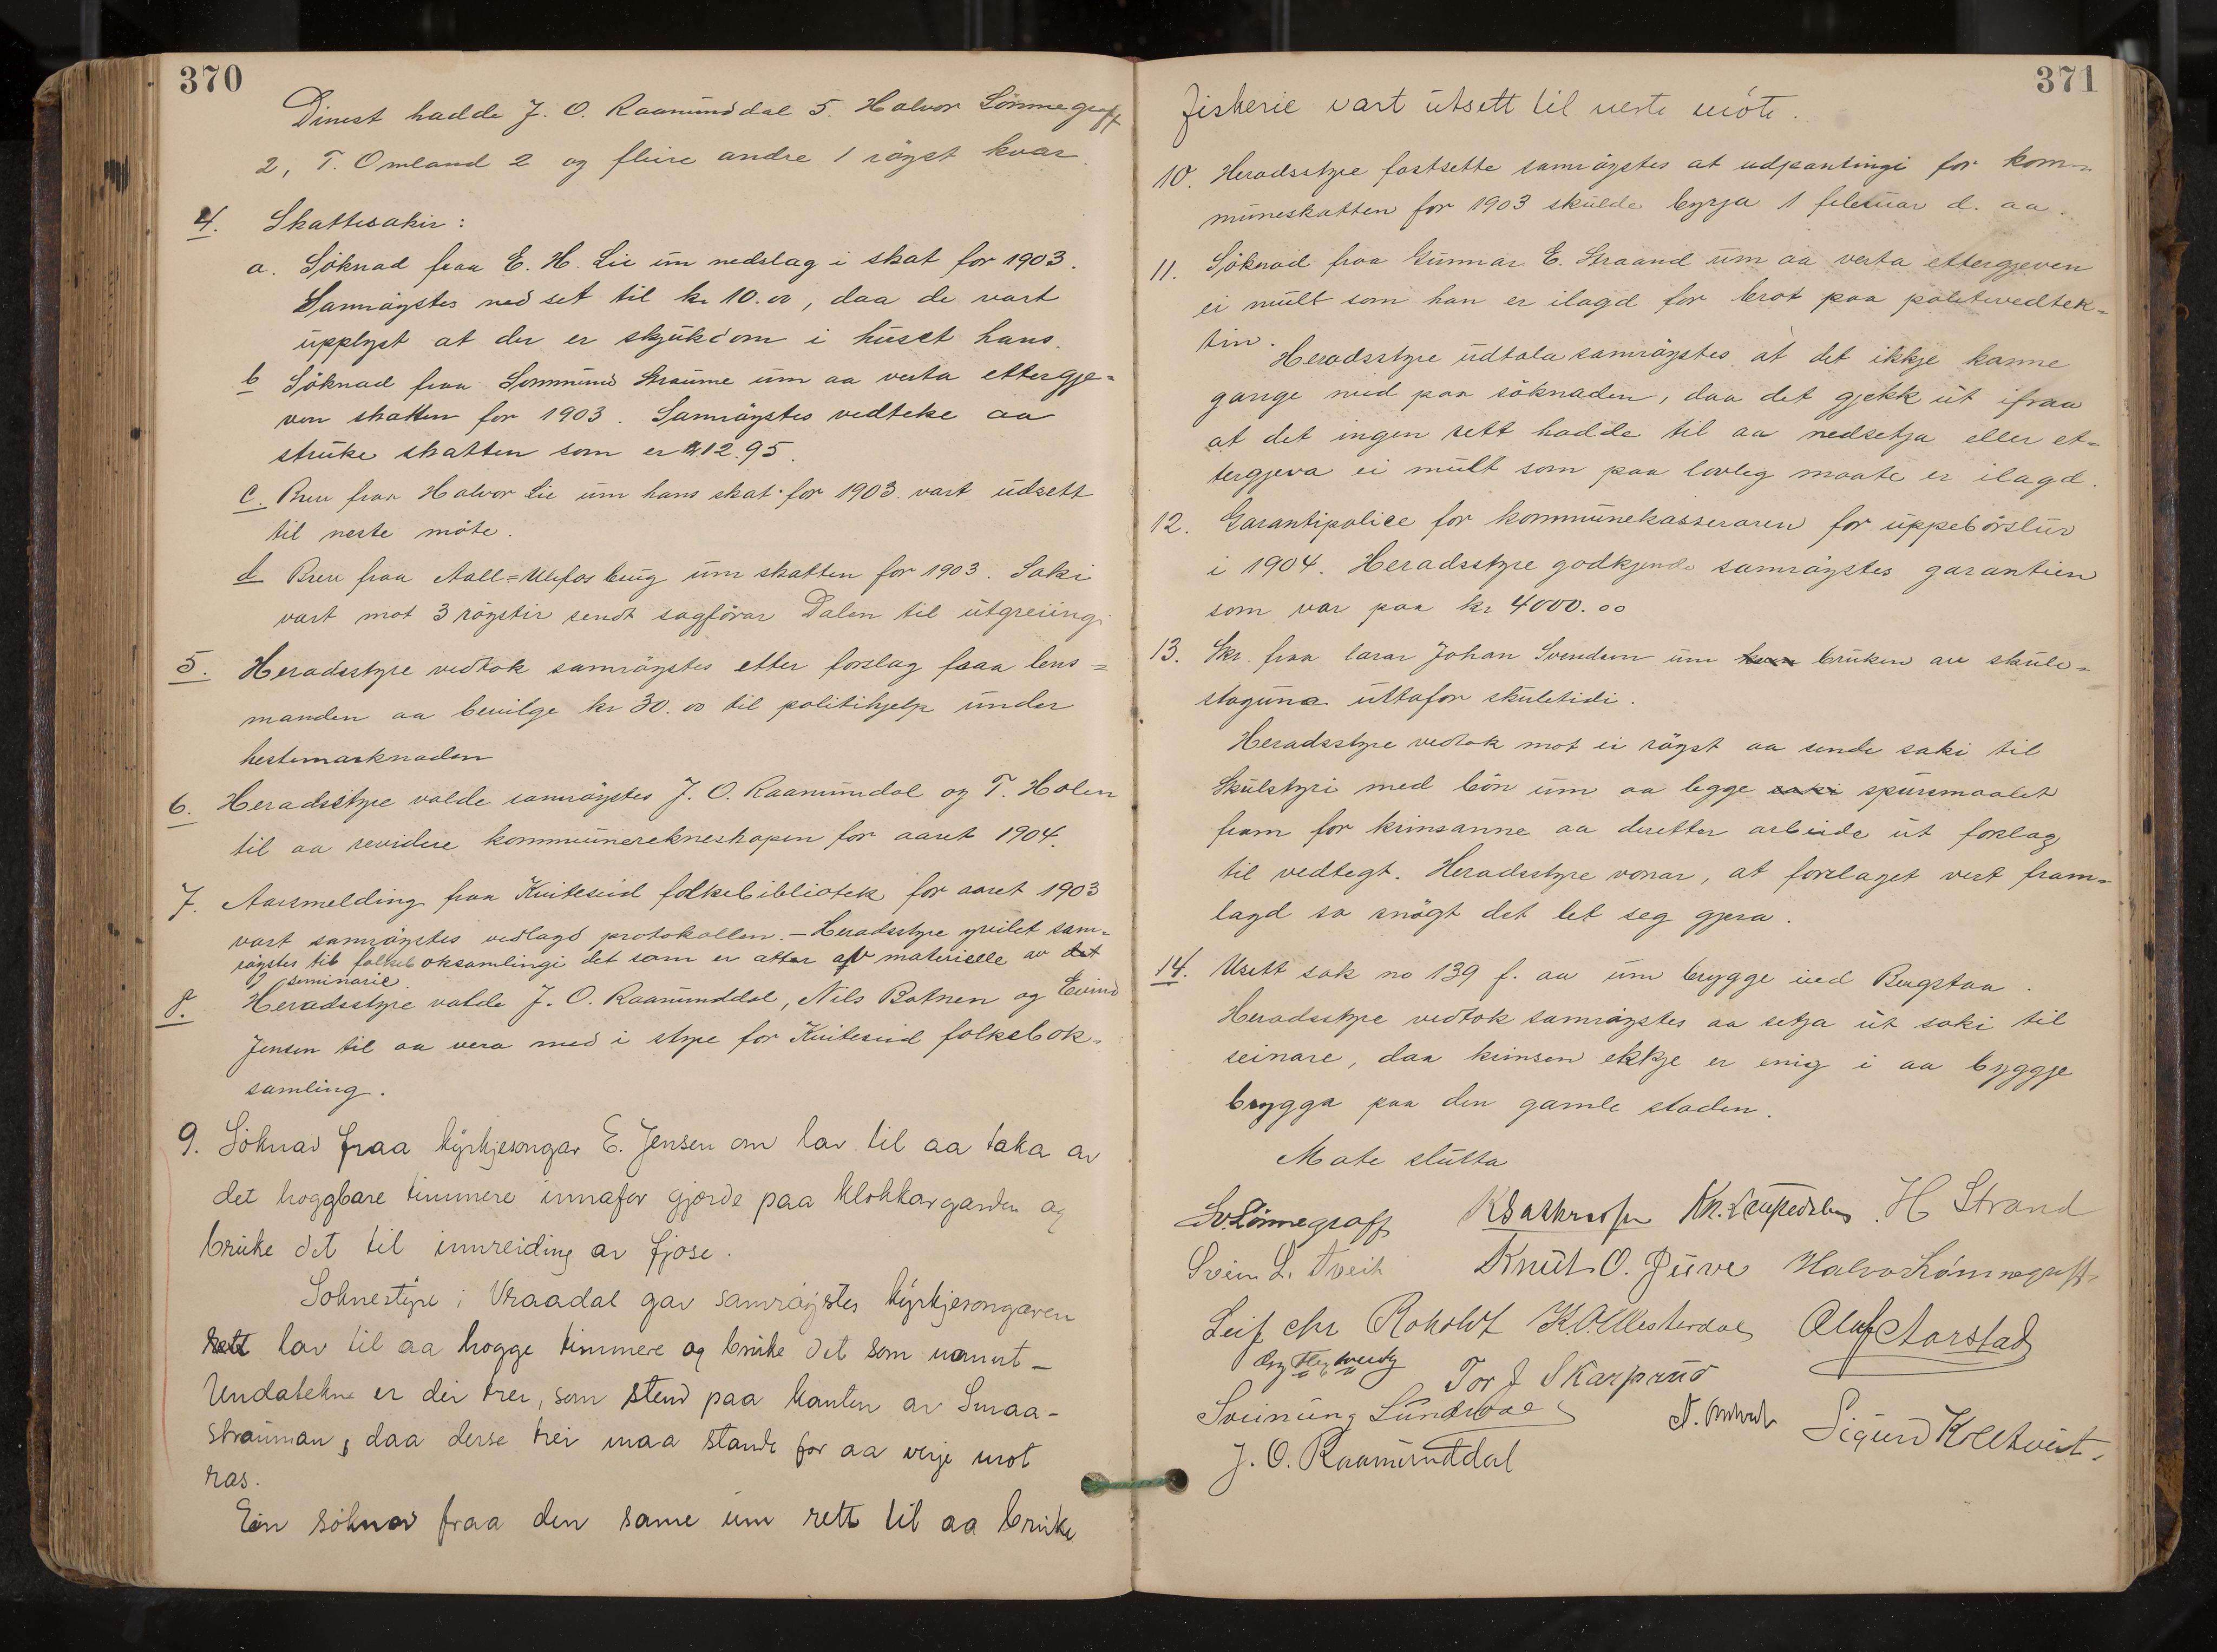 370
Dinest hadde J. O. Raamunddal 5. Halvor Lönnegraff
2, T. Omland 2 og fleire andre 1 röyst kvar.
4. Skattesakir:
a. Söknad fraa E. H. Lie um nedslag i skat for 1903.
Samröystes ned set til kr 10.00, daa de vart
upplyst at der er skjukdom i huset hans.
b Söknad fraa Sommund Straume um aa verta ettergje-
ven skatten for 1903. Samröystes vedteke aa
struke skatten som er kr 12.95.
c. Brev fraa Halvor Lie um hans skat for 1903 vart udsett
til neste möte.
d Brev fraa Aall=Ulefos brug um skatten for 1903. Saki
vart mot 3 röystir sendt sagförar Dalen til utgreiing.
5. Heradsstyre vedtok samröystes etter forslag fraa lens=
manden aa bevilge kr 30.00 til politihjelp under
hestemarknaden
6. Heradsstyre valde samröystes J. O. Raamundal og T. Holen
til aa revidere kommunerekneskapen for aaret 1904.
7. Aarsmelding fraa Kviteseid folkebibliotek for aaret 1903
vart samröystes vedlagd protokollen. – Heradsstyre yvilet sam-
röystes til folkeboksamlingi det som er atter av materielle av det
seminarie
8. Heradsstyre valde J. O. Raamunddal, Nils Botnen og Eivind
Jensen til aa vera med i styre for Kviteseid folkebok-
samling.
9. Söknad fraa kyrkjesongar E. Jensen om lov til aa taka av
det hoggbare timmere innafor gjorde paa klokkargarden og
bruke det til innreiding av fjose.
Soknestyre i Vraadal gav samröystes kyrkjesongaren
rett lov til aa hogge timmere og bruke det som nemnt –
Undatekne er dei trer, som stend paa kanten av Smaa-
straumen, daa desse trei maa stande for aa verje mot
ras.
Ein söknad fraa den same um rett til aa bruke
371
fiskerie vart utsett til neste möte.
10. Heradsstyre fastsette samröystes at udpantingi for kom-
muneskatten for 1903 skulde byrja 1 februar d. aa.
11. Söknad fraa Gunnar E. Straand um aa verta ettergjeven
ei mult som han er ilagd for brot paa politivedtek-
tin.
Heradsstyre udtala samröystes at det ikkje kanne
gange med paa söknaden, daa det gjekk ut ifraa
at det ingen rett hadde til aa nedsetja eller et-
tergjeva ei mult som paa lovleg maate er ilagd.
12. Garantipolice for kommunekasseraren for uppebörslur
i 1904. Heradsstyre godkjende samröystes garantien
som var paa kr 4000.00
13. Skr. fraa lærar Johan Svendsen um bruken av skule-
stoguna uttafor skuletidi.
Heradsstyre vedtok mot ei röyst aa sende saki til
Skulstyri med bön um aa legge saki spursmaalet
fram for krinsanne aa deretter arbeide ut forslag
til vedtegt. Heradsstyre vonar, at forslaget vert fram-
lagd so snögt det let seg gjera.
14. Utsett sak no 139 f. aa um brygge ved Bugstaa.
Heradsstyre vedtok samröystes aa setja ut saki til
seinare, daa krinsen ekkje er enig i aa byggje
brygga paa den gamle staden.
Möte slutta
Sv. Lönnegraff H Strand
Svein L. Tveit Knut O. Juve Halvor Lönnegraff
Leif chr Roholdt K. O. Vesterdal Oluf Aarstad
Tor J Skarprud
Sveinung Lundevall Sigurd Kolltveit.
J. O. Raamunddal